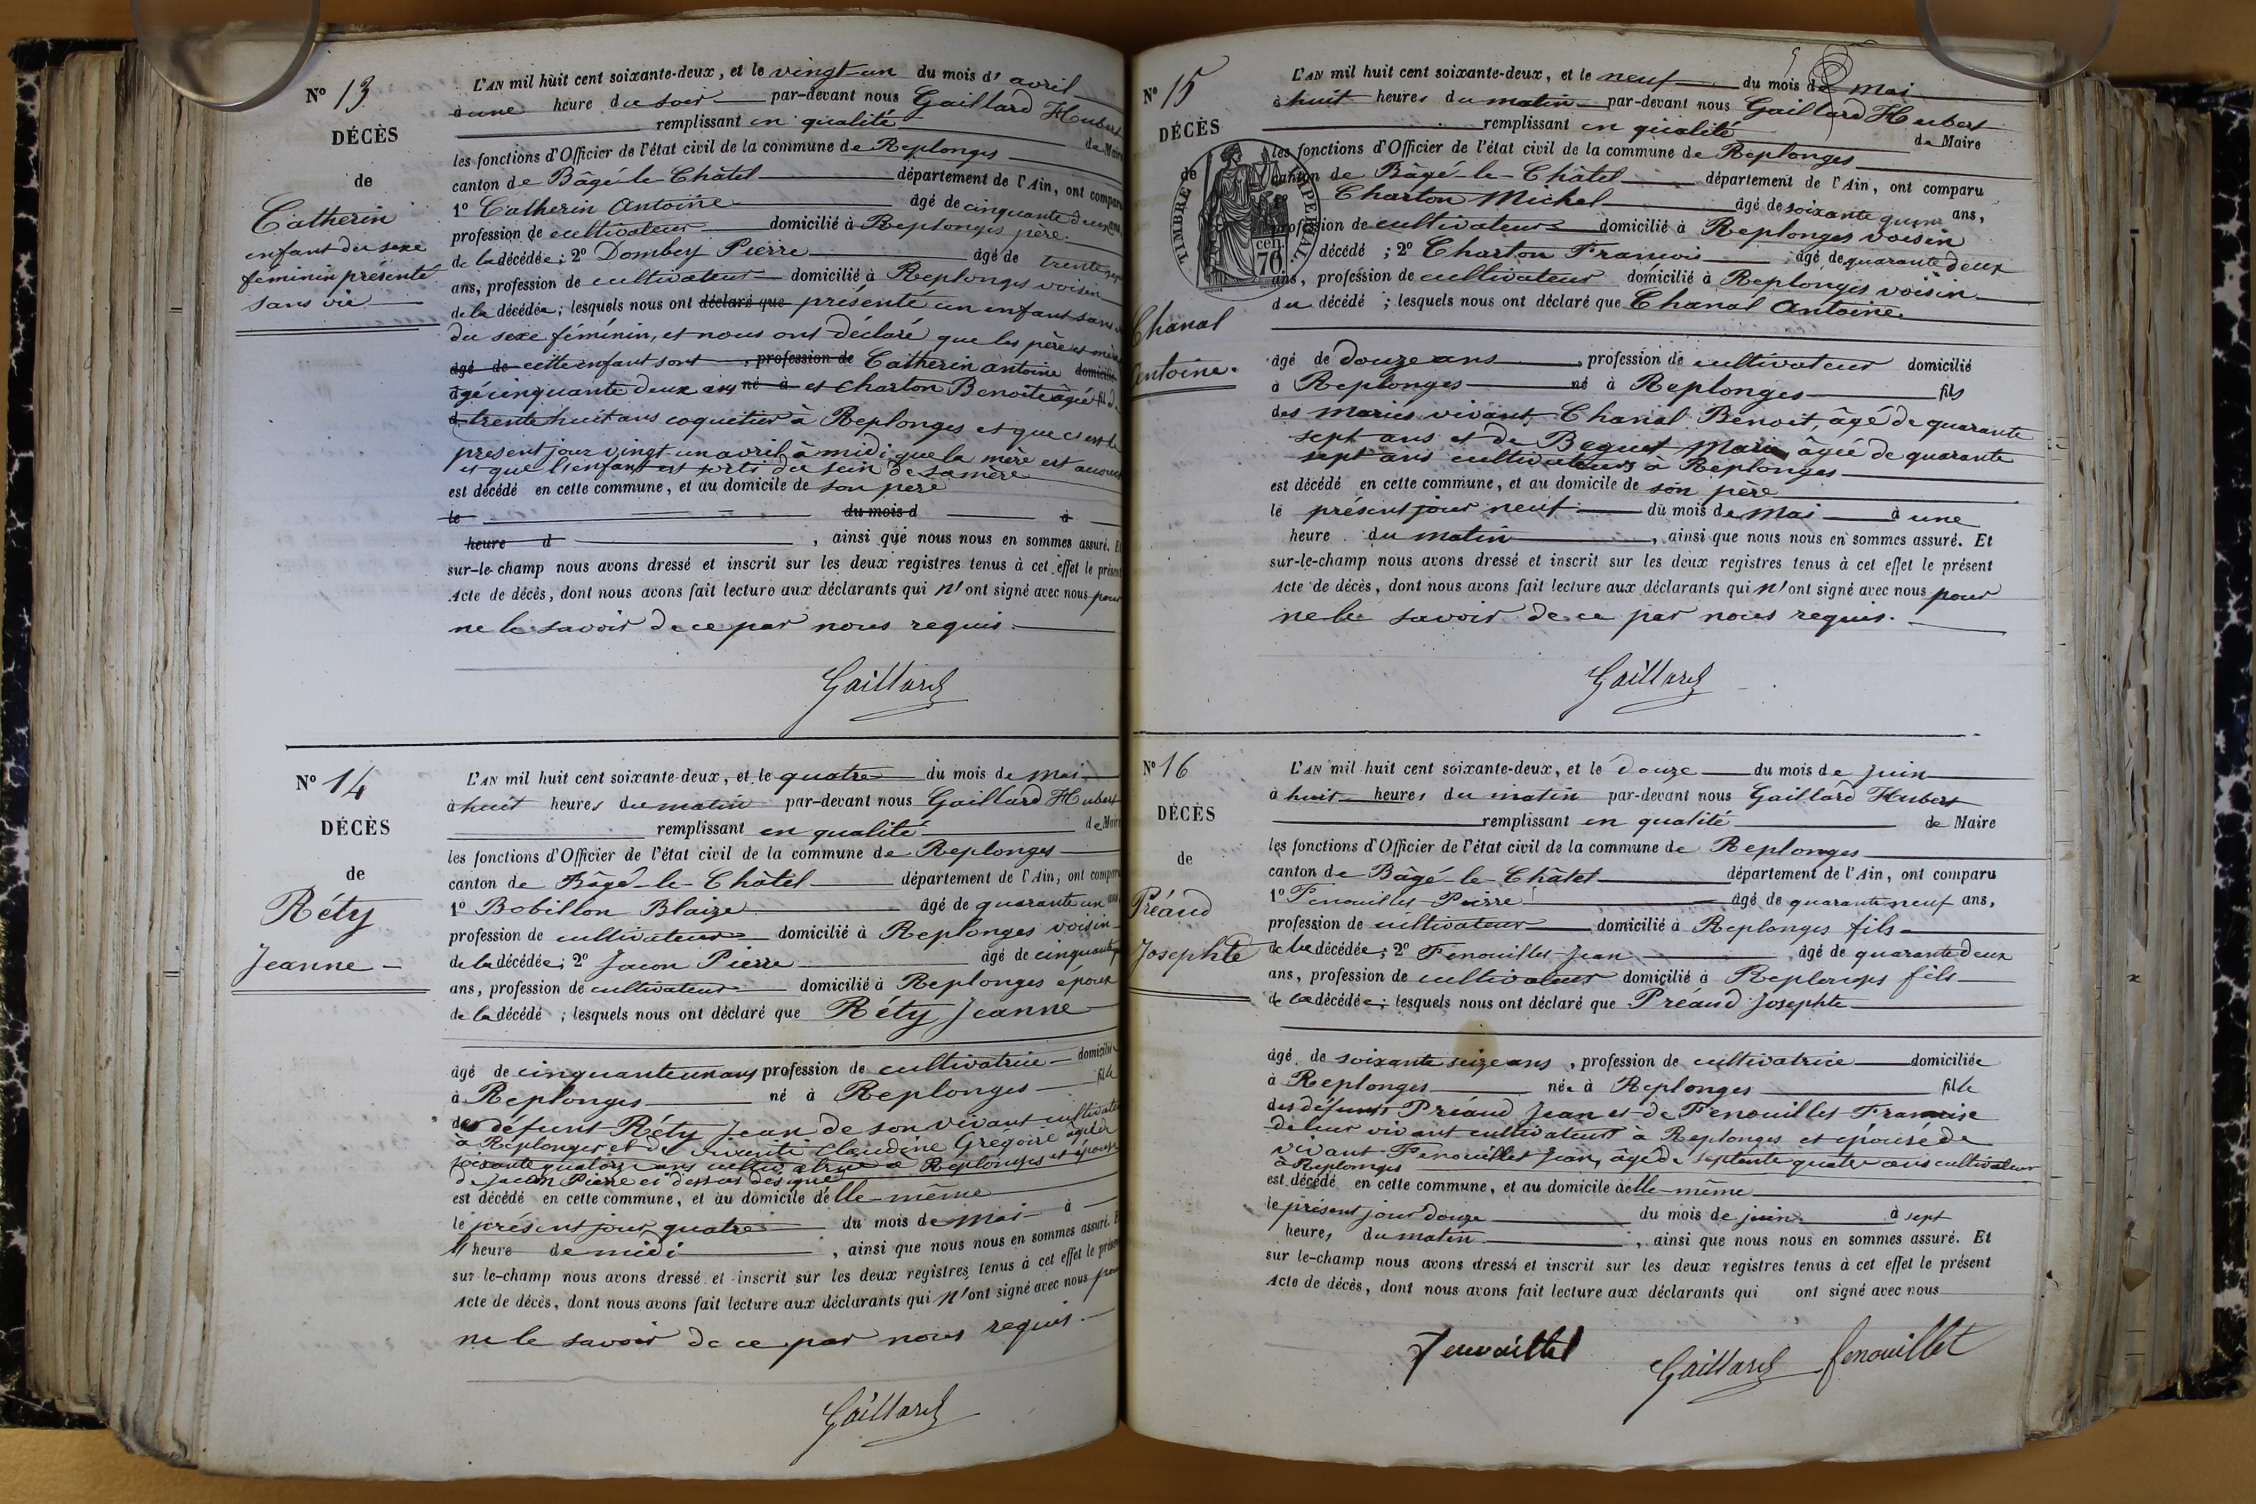 N° 13
DÉCÈS
de
Catherin
enfant du sexe
féminin présenté
sans vie
L'AN mil huit cent soixante-deux, et le vingt-un du mois d'avril
à une heure du soir par-devant nous Gaillard Hubert
remplissant en qualité de Maire
les fonctions d'Officier de l'état civil de la commune de Replonges
canton de Bâgé-le-Châtel département de l'Ain, ont comparu
1° Catherin Antoine âgé de cinquante deux ans,
profession de cultivateur domicilié à Replonges père
de la décédée; 2° Dombey Pierre âgé de trente
ans, profession de cultivateur domicilié à Replonges voisin
de la décédée; lesquels nous ont déclaré que présenté un enfant sans
du sexe féminin, et nous ont déclaré que les père et mère
âgé de cette enfant sont , profession de Catherin Antoine domicilié
âgé cinquante deux ans né à et Charton Benoite âgée fil d
d trente huit ans coquetier à Replonges et que c'est le
présent jour vingt un avril à midi que la mère est
et que l'enfant est sorti du sein de sa mère
est décédé en cette commune, et au domicile de son père
le du mois d à
heure d , ainsi que nous nous en sommes assuré. Et
sur-le-champ nous avons dressé et inscrit sur les deux registres tenus à cet effet le présent
Acte de décès, dont nous avons fait lecture aux déclarants qui n'ont signé avec nous pour
ne le savoir de ce par nous requis.
Gaillard
N° 14
DÉCÈS
de
Réty
Jeanne
L'AN mil huit cent soixante-deux, et le quatre du mois de Mai
à huit heures du matin par-devant nous Gaillard Hubert
remplissant en qualité de Maire
les fonctions d'Officier de l'état civil de la commune de Replonges
canton de Bâgé-le-Châtel département de l'Ain, ont comparu
1° Bobillon Blaize âgé de quarante un ans
profession de cultivateur domicilié à Replonges voisin
de la décédée; 2° Jacon Pierre âgé de cinquante
ans, profession de cultivateur domicilié à Replonges époux
de la décédé ; lesquels nous ont déclaré que Réty Jeanne
âgé de cinquante un ans profession de cultivatrice domiciliée
à Replonges né à Replonges fille
des défunt Réty Jean de son vivant cultivateur
à Replonges et de Claudine Gregoire âgée de
soixante quatorze ans cultivatrice à Replonges et épouse
de Jacon Pierre ci dessus désigné
est décédé en cette commune, et au domicile d'elle-même
le présent jour quatre du mois de Mai à
heure de midi , ainsi que nous nous en sommes assuré. Et
sur-le-champ nous avons dressé et inscrit sur les deux registres tenus à cet effet le présent
Acte de décès, dont nous avons fait lecture aux déclarants qui n'ont signé avec nous pour
ne le savoir de ce par nous requis.
Gaillard
N° 15
DÉCÈS
de
TIMBRE IMPERIAL
70 cen.
Chanal
Antoine.
L'AN mil huit cent soixante-deux, et le neuf du mois de mai
à huit heures du matin par-devant nous Gaillard Hubert
remplissant en qualité de Maire
les fonctions d'Officier de l'état civil de la commune de Replonges
canton de Bâgé-le-Châtel département de l'Ain, ont comparu
Charton Michel âgé de soixante quinze ans,
profession de cultivateur domicilié à Replonges voisin
décédé ; 2° Charton François âgé de quarante deux
ans, profession de cultivateur domicilié à Replonges voisin
du décédé ; lesquels nous ont déclaré que Chanal Antoine
âgé de douze ans , profession de cultivateur domicilié
à Replonges né à Replonges fils
des mariés vivant Chanal Benoit, âgé de quarante
sept ans et de Beguet Marie âgée de quarante
sept ans cultivateurs à Replonges
est décédé en cette commune, et au domicile de son père
le présent jour neuf du mois de Mai à une
heure du matin , ainsi que nous nous en sommes assuré. Et
sur-le-champ nous avons dressé et inscrit sur les deux registres tenus à cet effet le présent
Acte de décès, dont nous avons fait lecture aux déclarants qui n'ont signé avec nous pour
ne le savoir de ce par nous requis.
Gaillard
N° 16
DÉCÈS
de
Préaud
Josephte
L'AN mil huit cent soixante-deux, et le douze du mois de Juin
à huit heures du matin par-devant nous Gaillard Hubert
remplissant en qualité de Maire
les fonctions d'Officier de l'état civil de la commune de Replonges
canton de Bâgé-le-Châtel département de l'Ain, ont comparu
1° Fenouillet Pierre âgé de quarante neuf ans,
profession de cultivateur domicilié à Replonges fils
de la décédée; 2° Fenouillet Jean âgé de quarante deux
ans, profession de cultivateur domicilié à Replonges fils
de la décédée; lesquels nous ont déclaré que Préaud Josephte
âgé de soixante seize ans , profession de cultivatrice domiciliée
à Replonges née à Replonges fille
des défunts Préaud Jean et de Fenouillet Françoise
de leur vivant cultivateurs à Replonges et épouse de
vivant Fenouillet Jean, âgé de septente quatre ans cultivateur
à Replonges
est décédé en cette commune, et au domicile d'elle-même
le présent jour douze du mois de juin à sept
heures du matin , ainsi que nous nous en sommes assuré. Et
sur le-champ nous avons dressé et inscrit sur les deux registres tenus à cet effet le présent
Acte de décès, dont nous avons fait lecture aux déclarants qui ont signé avec nous
Fenouillet Gaillard fenouillet